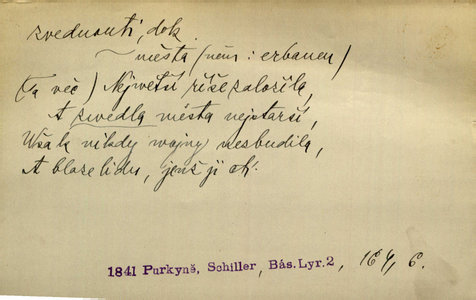 zvednouti, dok.
~ města (něm: erbauen)
(Ta věc) Největší říše založila,
A zwedla města nejstarší,
Však nikdy wojny nesbudila,
A blaze lidu, jenž ji ctí.
1841 Purkyně, Schiller, Bás. Lyr. 2, 164, 6.